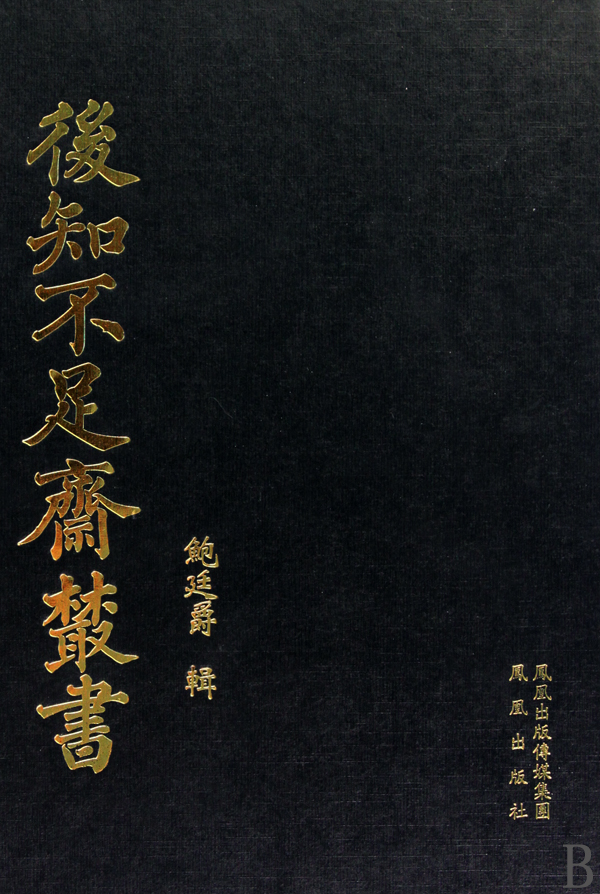 後知不足齋叢書
鮑廷爵 輯
鳳凰出版傳媒集團
鳳凰出版社
B